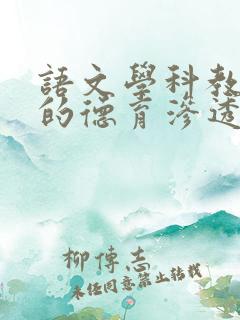 語文學科教
的德育滲透
柳傳志
未经同意禁止转载